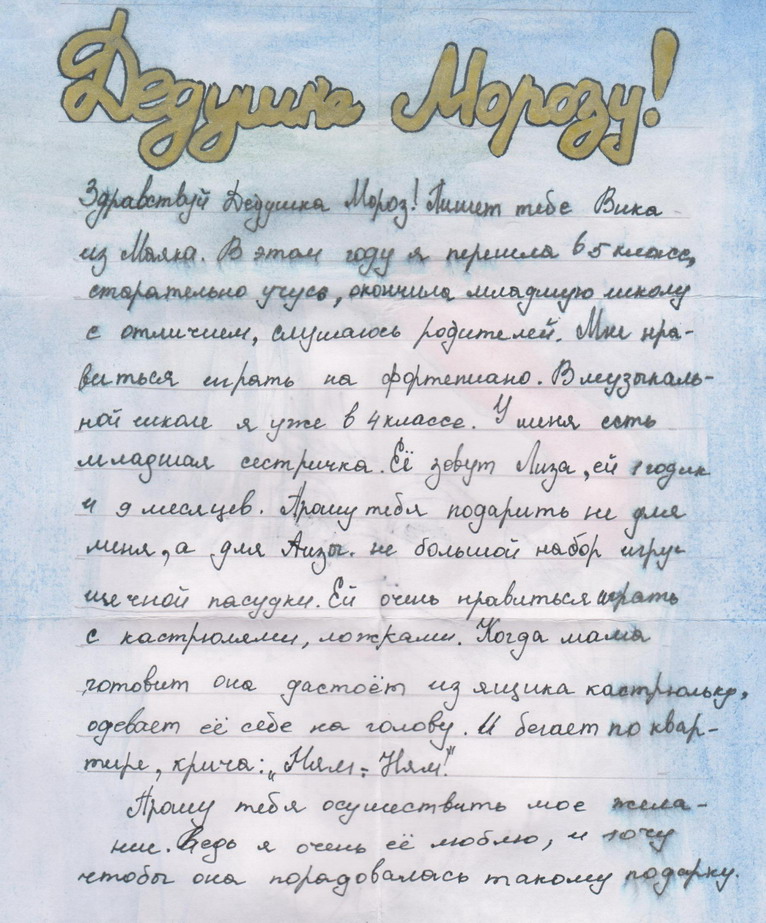 Дедушке Морозу!
Здравствуй Дедушка Мороз! Пишет тебе Вика
из Маяка. В этом году я перешла в 5 класс,
старательно учусь, окончила младшую школу
с отличием, слушаюсь родителей. Мне нра-
виться играть на фортепиано. В музыкаль-
ной школе я уже в 4 классе. У меня есть
младшая сестричка. Её зовут Лиза, ей 1 годик
и 9 месяцев. Прошу тебя подарить не для
меня, а для Лизы. не большой набор игру-
шечной пасудки. Ей очень нравиться играть
с кастрюлями, ложками. Когда мама
готовит она дастоёт из ящика кастрюльку,
одевает её себе на голову. И бегает по квар-
тире, крича: „Ням-Ням!"
Прошу тебя осуществить мое жела-
ние. Ведь я очень её люблю, и хочу
чтобы она порадовалась такому подарку.